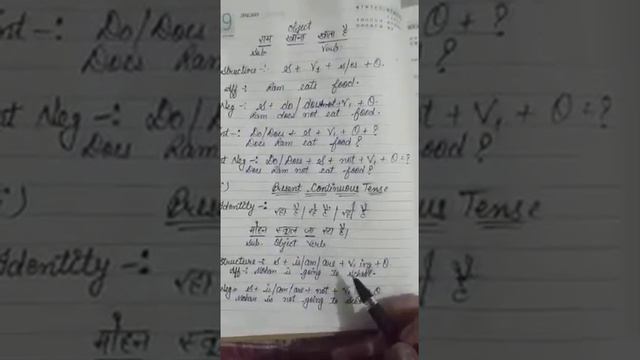 Object
राम खाना खाता है
Sub. Verb.
Structure -: S + V1 + s/es + O.
Aff -: Ram eats food.
Neg -: S + do/does + not + V1 + O.
Ram does not eat food.
Int -: Do/Does + S + V1 + O + ?
Does Ram eat food?
Int Neg -: Do/Does + S + not + V1 + O = ?
Does Ram not eat food?
Present Continuous Tense
Identity -: रहा है / रहे हैं / रही है
मोहन स्कूल जा रहा है।
Sub. Object Verb
Structure -: S + is/am/are + V1 ing + O
Aff -: Mohan is going to school.
Neg = S + is/am/are + not + V1 O
Mohan is not going to